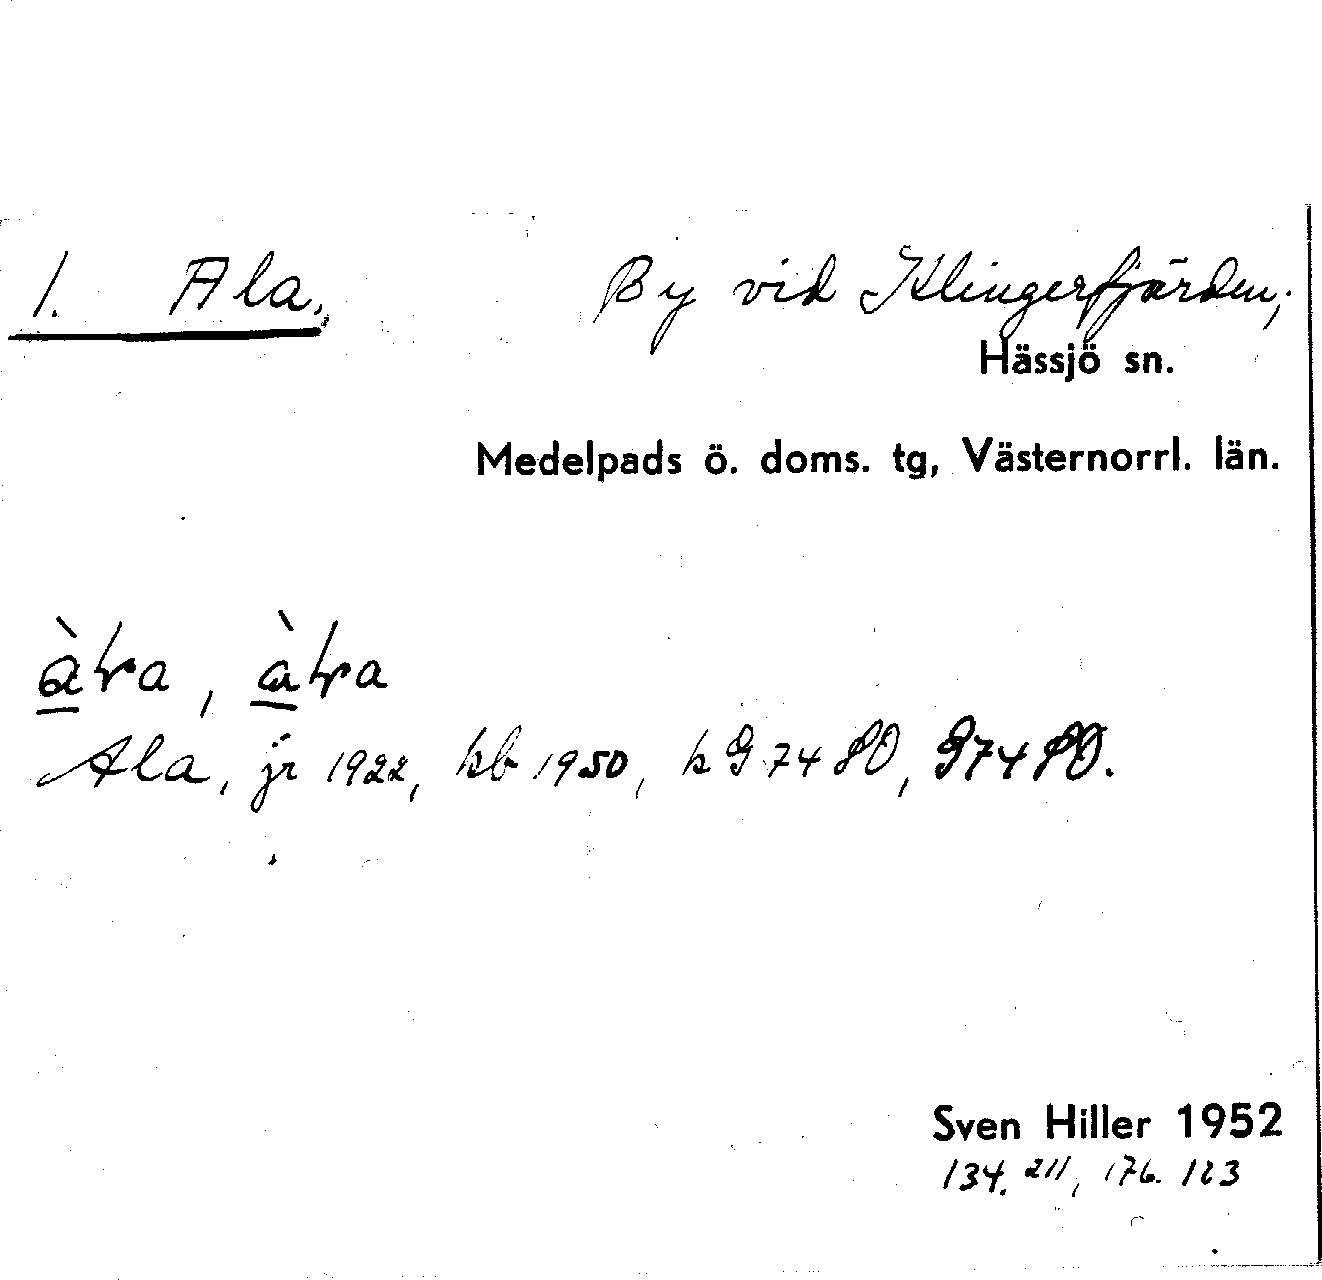 1. Ala, By vid Klingerfjärden;
Hässjö sn.
Medelpads ö. doms. tg, Västernorrl. län.
Ala, jr 1922, kb 1950,
Sven Hiller 1952
134. 211, 176. 123